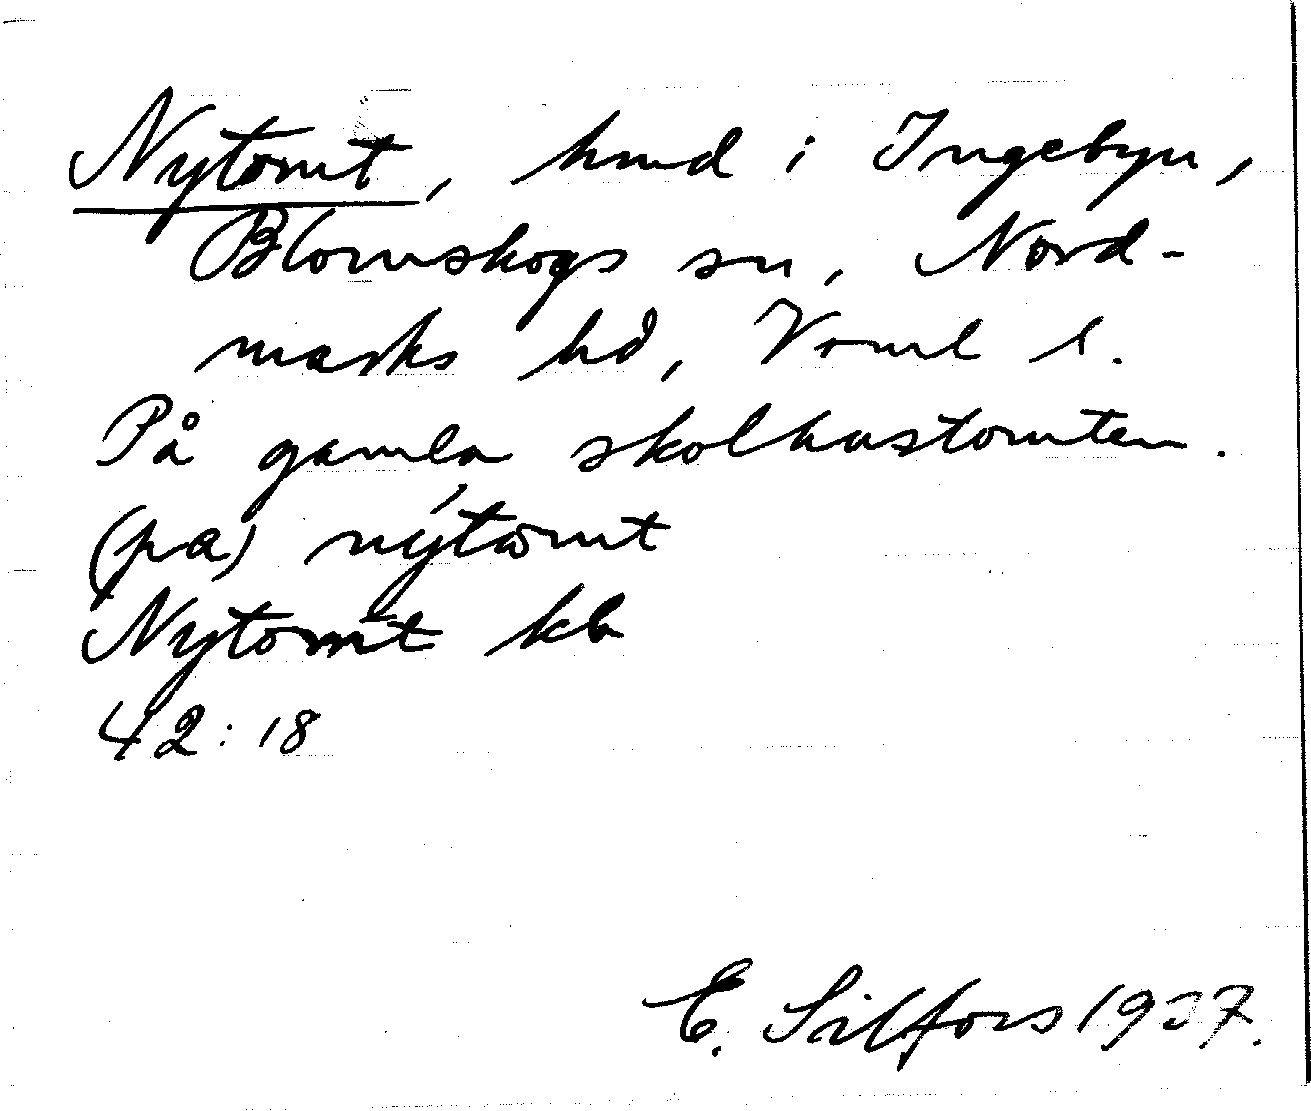 Nytomt, hmd i Ingebyn,
Blomskogs sn, Nord-
marks hd, Vrml l.
På gamla skolhustomten.
(pa) nýtωmt
Nytomt kb
42:18
E. Silfors 1937.